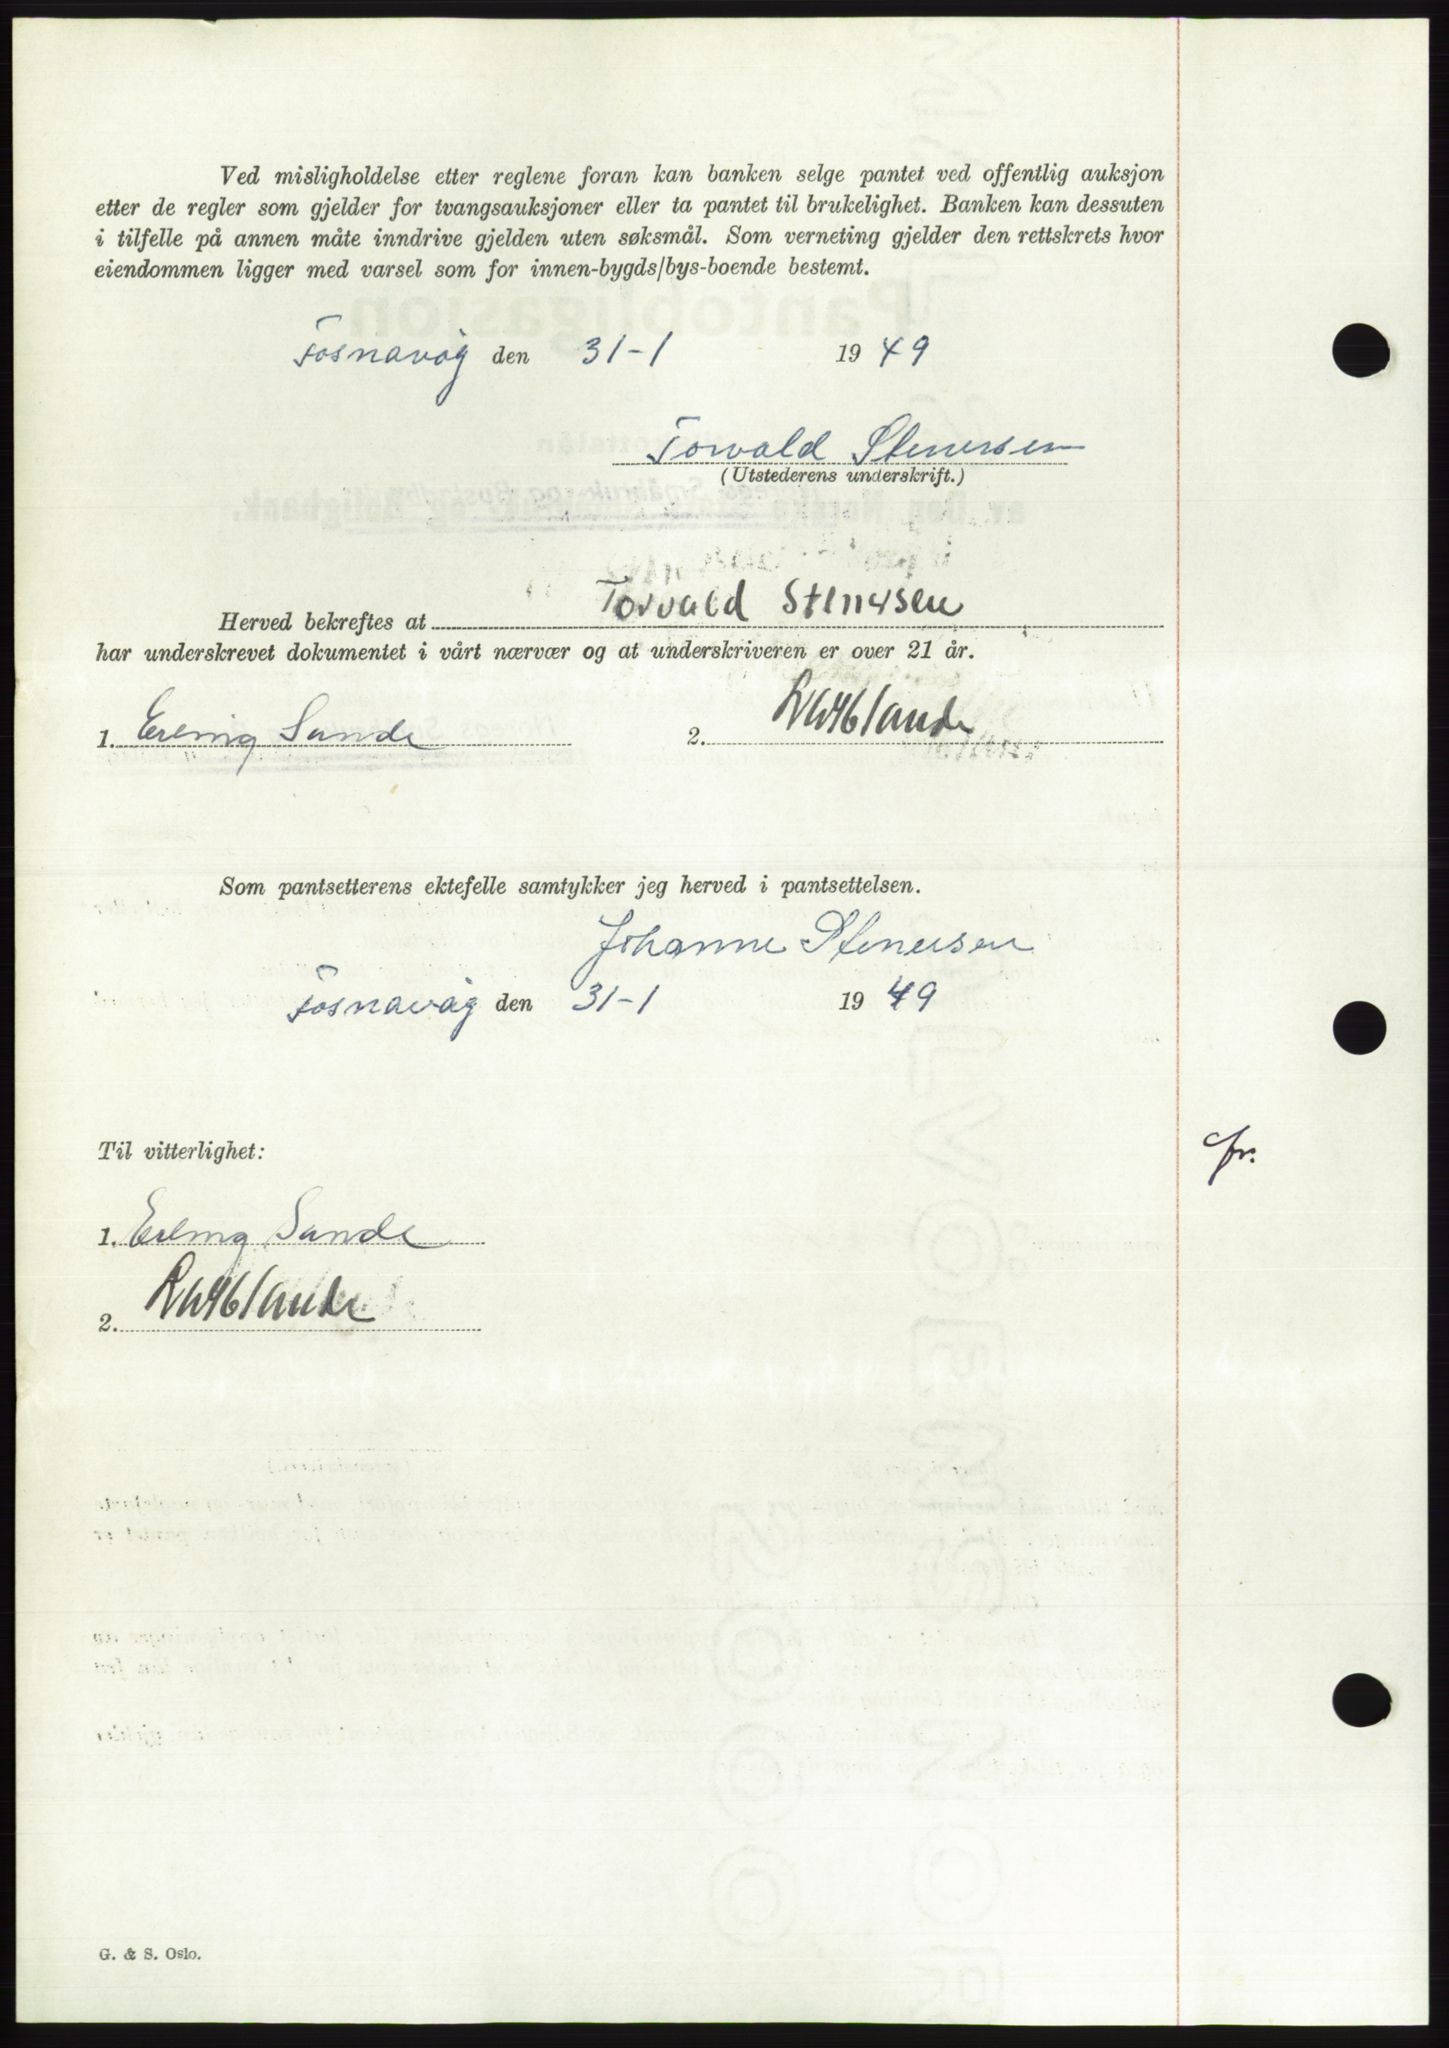 Ved misligholdelse etter reglene foran kan banken selge pantet ved offentlig auksjon
etter de regler som gjelder for tvangsauksjoner eller ta pantet til brukelighet. Banken kan dessuten
i tilfelle på annen måte inndrive gjelden uten søksmål. Som verneting gjelder den rettskrets hvor
eiendommen ligger med varsel som for innen-bygds/bys-boende bestemt.
Fosnavåg den 31-1 1949
Torvald Stenersen
(Utstederens underskrift.)
Herved bekreftes at Torvald Stenersen
har underskrevet dokumentet i vårt nærvær og at underskriveren er over 21 år.
1. Erling Sande 2.
Som pantsetterens ektefelle samtykker jeg herved i pantsettelsen.
Johanne Stenersen
Fosnavåg den 31-1 1949
Til vitterlighet:
1. Erling Sande
2.
G. & S. Oslo.